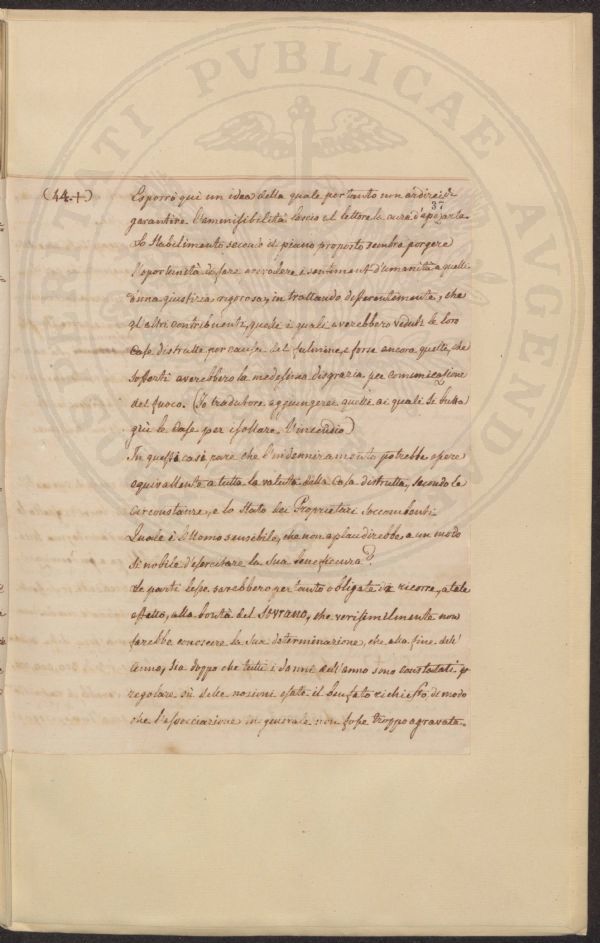 PROSPERITATI PVBLICAE AVGENDAE
(44.+)
37
Esporrò qui un idea della quale per tanto non ardirei di
garantire l'ammissibilità lascio al lettore la cura d'apozarla
Lo Stabilimento secondo il piano proposto sembra porgere
l'oportunità di fare accedere i sentimenti d'umanità a quelli
d'una giustizia rigorosa, in trattando differentemente, che
gl'altri contribuenti, quelli i quali averebbero veduti le loro
Case distrutte per causa del fulmine, e forse ancora quelli, che
sofferti averebbero la medesima disgrazia per comunicazione
del fuoco. (Io tradutore aggiungerei quelli ai quali si butta
giù le Case per isollare l'incendio)
In questi casi pare che l'indennizamento potrebbe essere
equivallente a tutta la valuta della Casa distrutta, secondo le
circonstanze, e lo Stato dei Proprietari Soccombenti.
Quale è l'Uomo sensibile, che non aplaudirebbe, a un modo
si nobile d'esercitare la sua beneficenza?
Le parti lese sarebbero per tanto obligate di ricorre, a tale
effetto, alla bontà del Sovrano, che verisimilmente non
farebbe conoscere la sua determinazione, che alla fine dell'
Anno, sia doppo che tutti i danni dell'anno sono constatati p
regolare sù delle nozioni esate il benfato richiesto, di modo
che l'associazione in generale non fosse troppo agravata.